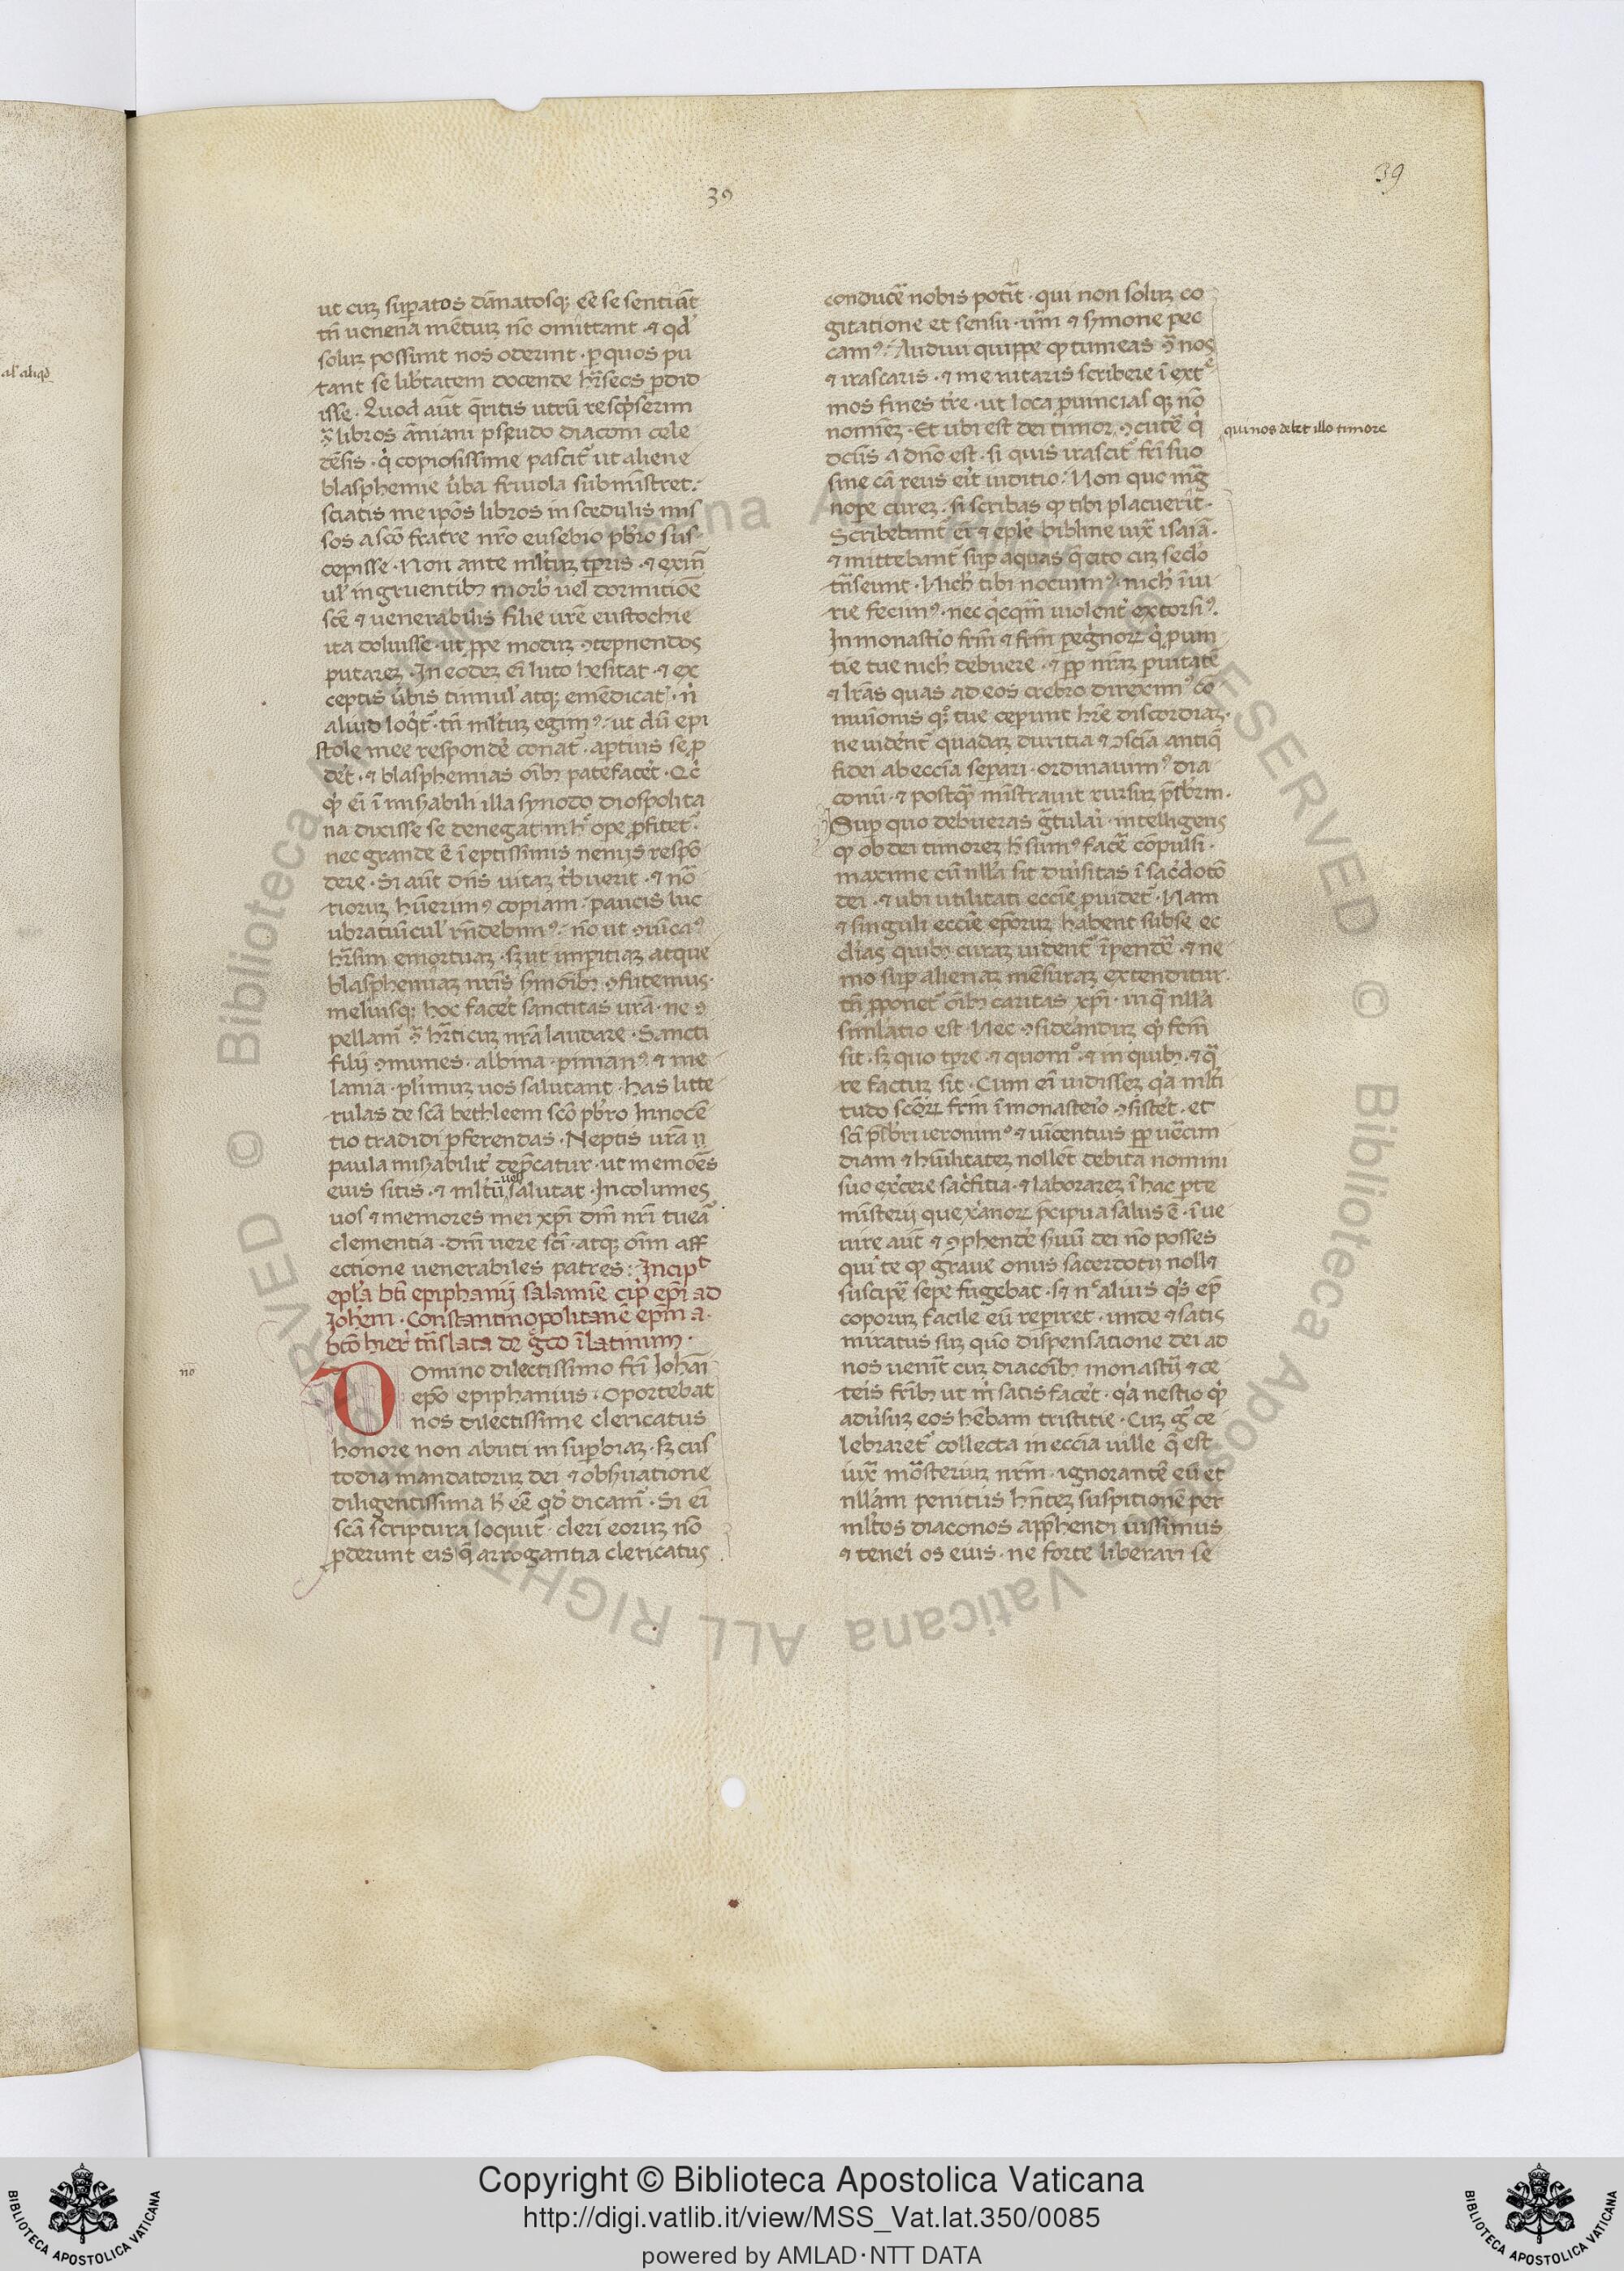 39
39
al' aliqd
ut cuz supatos dānatosq; eē se sentiāt
tn̄ uenena mētiuz nō omittant · ⁊ qd'
soluz possunt nos oderint · p quos pu
tant se lib'tatem docende hr̄seos pdid
isse · Quod aūt q̄ritis utrū rescp̄serim
ꝯ̄ libros āniani pseudo diaconi cele
dēsis · q̇ copiosissime pascit' ut aliene
blasphemie ūba friuola submīstret ·
sciatis me ip̄os libros in scedulis mis
sos a scō fratre nr̄o eusebio pb̄ro sus
cepisse · Non ante ml'tuz tp̄ris · ⁊ exin̄
ul' ingruentib; morb' uel dormitiōe
scē ⁊ uenerabilis filie ur̄e eustochie
ita doluisse · ut ppe moduz ꝯtepnendos
putarez · In eodez ei luto hesitat · ⁊ ex
ceptis ūbis tinnul' atq; emēdicat' · n̄
aliud loq̇t' · tn̄ ml'tuz egim9 · ut dū epi
stole mee respondē conat' · aptius se p
det · ⁊ blasphemias oīb; patefacet · Q̇c̄
qd' ei ī mis̄abili illa synodo diospolita
na dixisse se denegat in h° ope pfitet' ·
nec grande ē ī eptissimis nenijs respō
dere · Si aūt dn̄s uitaz t'buerit · ⁊ no
tiorum hūerim9 copiam · paucis luc
ubratiūcul' rn̄debim9 · nō ut ꝯuīca9
hr̄sim emortuaz · sz ut imperitiaz atque
blasphemiaz nr̄is s̄monib; ꝯfutemus ·
meliusq; hoc facet sanctitas ur̄a · ne ꝯ
pellam' ꝯ̄ hr̄ticuz nr̄a laudare · Sancti
filij ꝯmunes · albina · pinian9 · ⁊ me
lania · pl'imuz uos salutant · has litte
rulas de scā bethleem scō pb̄ro Innocē
tio tradidi pferendas · Neptis ur̄a ij
paula mis̄abilit' dep̄catur · ut memoēs
uos
eius sitis · ⁊ ml'tū salutat · Incolumes
uos ⁊ memores mei xp̄i dn̄i nr̄i tuea
clementia · dn̄i uere scī · atq; oīm aff
ectione uenerabiles patres : Incip^t
epl'a bt̄i epiphanij salamīe cip' ep̄i ad
Joh̄em · Constantinopolitanē ep̄m a ·
btō hier' tn̄slata de ḡco ī latinum ·
no
Domino dilectissimo frī Iohāi
epō epiphanius · Oportebat
nos dilectissime clericatus
honore non abuti in supbiaz · sz cus
todia mandatoruz dei ⁊ obs̄uatione
diligentissima h' eē qd' dicam' · Si ei
scā scriptura loquit' · cleri eoruz nō
pderunt eis q̄ arrogantia clericatus
conducē nobis potīt · qui non soluz co
gitatione et sensu · ūm ⁊ s̄mone pec
cam9 · Audiui quippe qd' tumeas ꝯ̄ nos
⁊ irascaris · ⁊ me niteris scribere ī ext'e
mos fines tr̄e · ut loca puincias q; nō
nomiez · Et ubi est dei timor · ꝯcutē q̇
qui nos debet illo timore
dctīs a dn̄o est · si quis irascit' frī suo
sine cā reus eīt iuditio · Non que mag̅
nope curez · si scribas qd' tibi placuerit ·
Scribebant' ei ⁊ epl'e bibline iux̄ isaiā ·
⁊ mittebant' sup aquas q̄ cito cuz seclo
tn̄seunt · Nich' tibi nocuim9 · nich' īiu
rie fecim9 · nec q̇cqm̄ uiolent' extorsi9 ·
In monast'io frīm ⁊ frīm pegnorꝝ q̇ puin
tie tue nich' debuere · ⁊ pp nr̄az puitatē
⁊ lr̄as quas ad eos crebro direxim9 cō
muīonis q; tue ceperunt hr̄e discordiaz ·
ne uident' quadaz duritia ⁊ ꝯscīa antiq̄
fidei ab eccīa separi · ordinauim9 dia
conū · ⁊ postq̄ mīstrauit rursuz p̄sb'm ·
Sup quo debueras g̅tulai · intelligens
qd' ob dei timorez h' sum9 facē cōpulsi ·
maxime cū nll'a sit diūsitas ī sac̄dotō
dei · ⁊ ubi utilitati eccīe puidet' · Nam
⁊ singuli eccīe ep̄oruz habent sub se ec
clīas quib; curaz uident' īpendē · ⁊ ne
mo sup alienaz mēsuraz extenditur ·
tn̄ pponet' oīb; caritas xp̄i · in q̄ nll'a
simlatio est · Nec ꝯsideānduz qd' fcm̄
sit · sz quo tp̄re · ⁊ quom° · ⁊ in quib; · ⁊ q̄
re factuz sit · Cum eī uidissez q'a ml'ti
tudo scōꝝ frīm ī monasteīo ꝯsistet · et
scī p̄sb'ri ieronim9 ⁊ uīcentius pp uēcun
diam ⁊ hūilitatez nollet debita nomini
suo ex'cere sac̄fitia · ⁊ laborarez ī hac pte
mīsterij que x'anorꝝ p̄cipua salus ē · īue
nire aūt ⁊ ꝯphendē s̄uū dei nō posses
qui te qd' graue onus sacerdotij nollet
suscipē sepe fugebat · s; n° alius q's ep̄
coporuz facile eū reperiret · unde ⁊ satis
miratus suz quō dispensatione dei ad
nos uenīt cuz diacōīb; monastij ⁊ ce
teīs frīb; ut m̄ satis facet · q'a nestio qd'
adūsuz eos hēbam tristitie · Cuz g° ce
lebraret' collecta in eccīa uille q̄ est
iux̄ mōsteriuz nr̄m · ignorantē eū et
nll'am penitus hn̄tez suspitionē per
ml'tos diaconos app̄hendi iussimus
⁊ tenei os eius · ne forte liberari se
Copyright © Biblioteca Apostolica Vaticana
http://digi.vatlib.it/view/MSS_Vat.lat.350/0085
powered by AMLAD·NTT DATA
BIBLIOTECA APOSTOLICA VATICANA
BIBLIOTECA APOSTOLICA VATICANA
© Biblioteca Apostolica Vaticana ALL RIGHTS RESERVED © Biblioteca Apostolica Vaticana ALL RIGHTS RESERVED